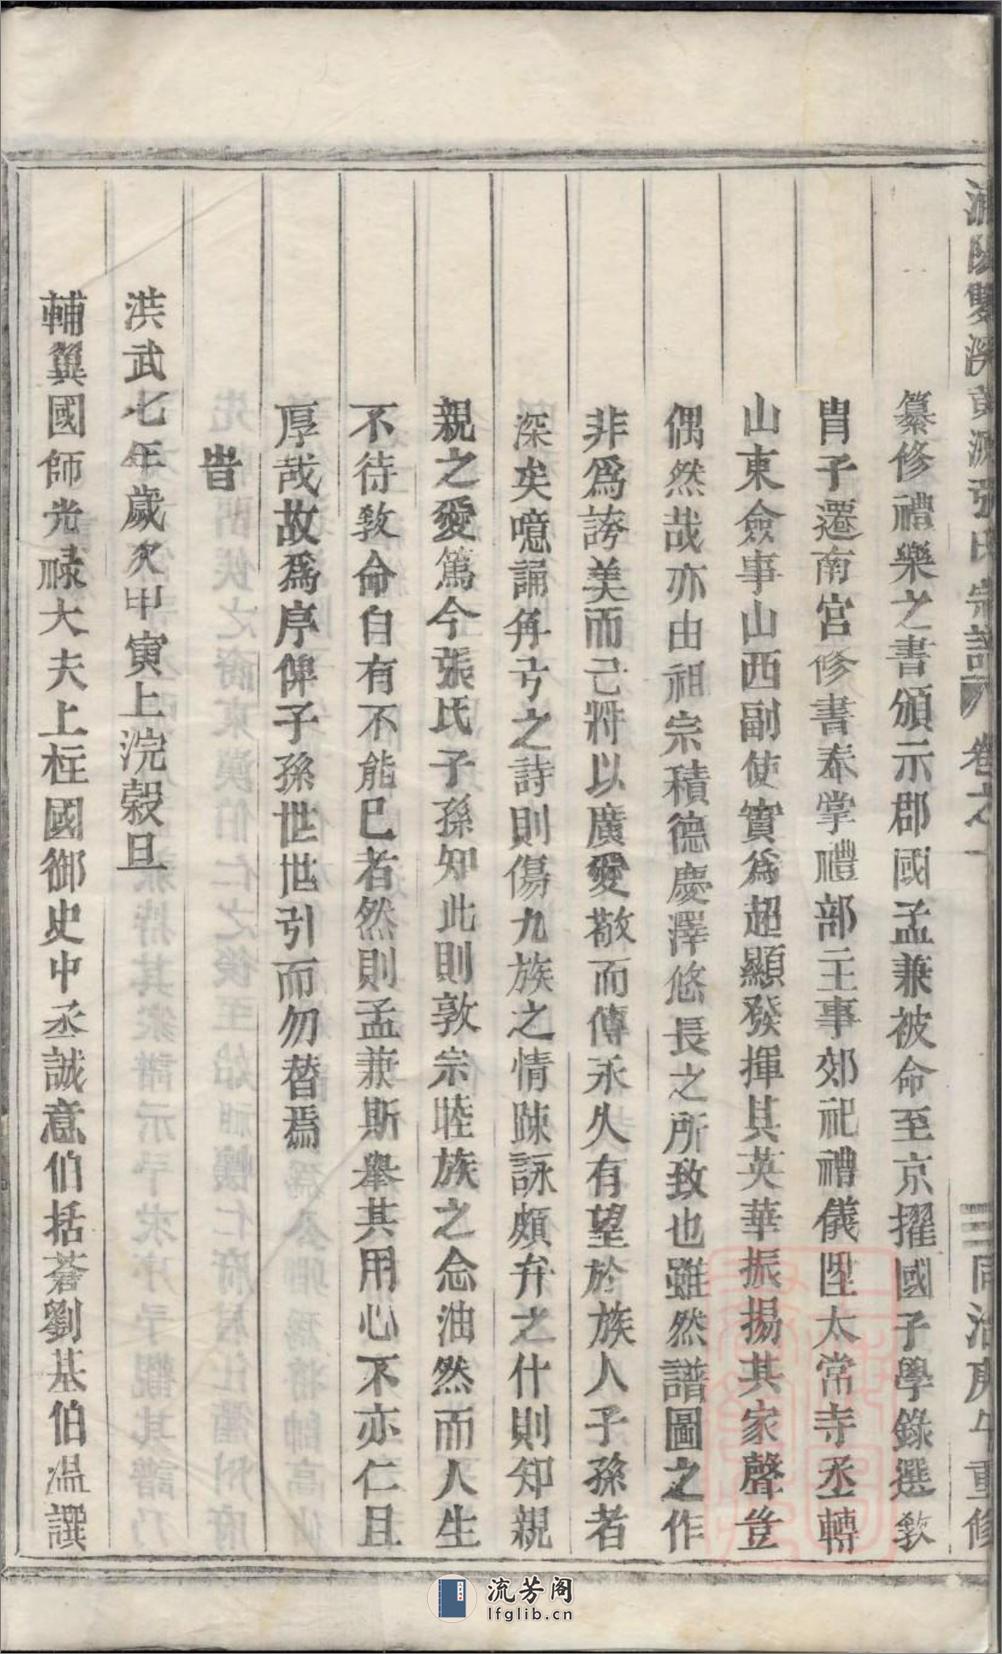 浦陽雙溪黃源張氏宗譜 卷之一 三 同治庚午重修
纂修禮樂之書頒示郡國孟兼被命至京擢國子學錄選敎
胄子遷南宮修書奉掌禮部主事郊祀禮儀陞太常寺丞轉
山東僉事山西副使實爲超顯發揮其英華振揚其家聲豈
偶然哉亦由祖宗積德慶澤悠長之所致也雖然譜圖之作
非爲誇美而已將以廣愛敬而傳永久有望於族人子孫者
深矣噫誦角弓之詩則傷九族之情踈詠頍弁之什則知親
親之愛篤今張氏子孫知此則敦宗睦族之念油然而人生
不待敎命自有不能已者然則孟兼斯舉其用心不亦仁且
厚哉故爲序俾子孫世世引而勿替焉
旹
洪武七年歲次甲寅上浣穀旦
輔翼國師光祿大夫上柱國御史中丞誠意伯括蒼劉基伯溫譔
流芳阁
lfglib.cn